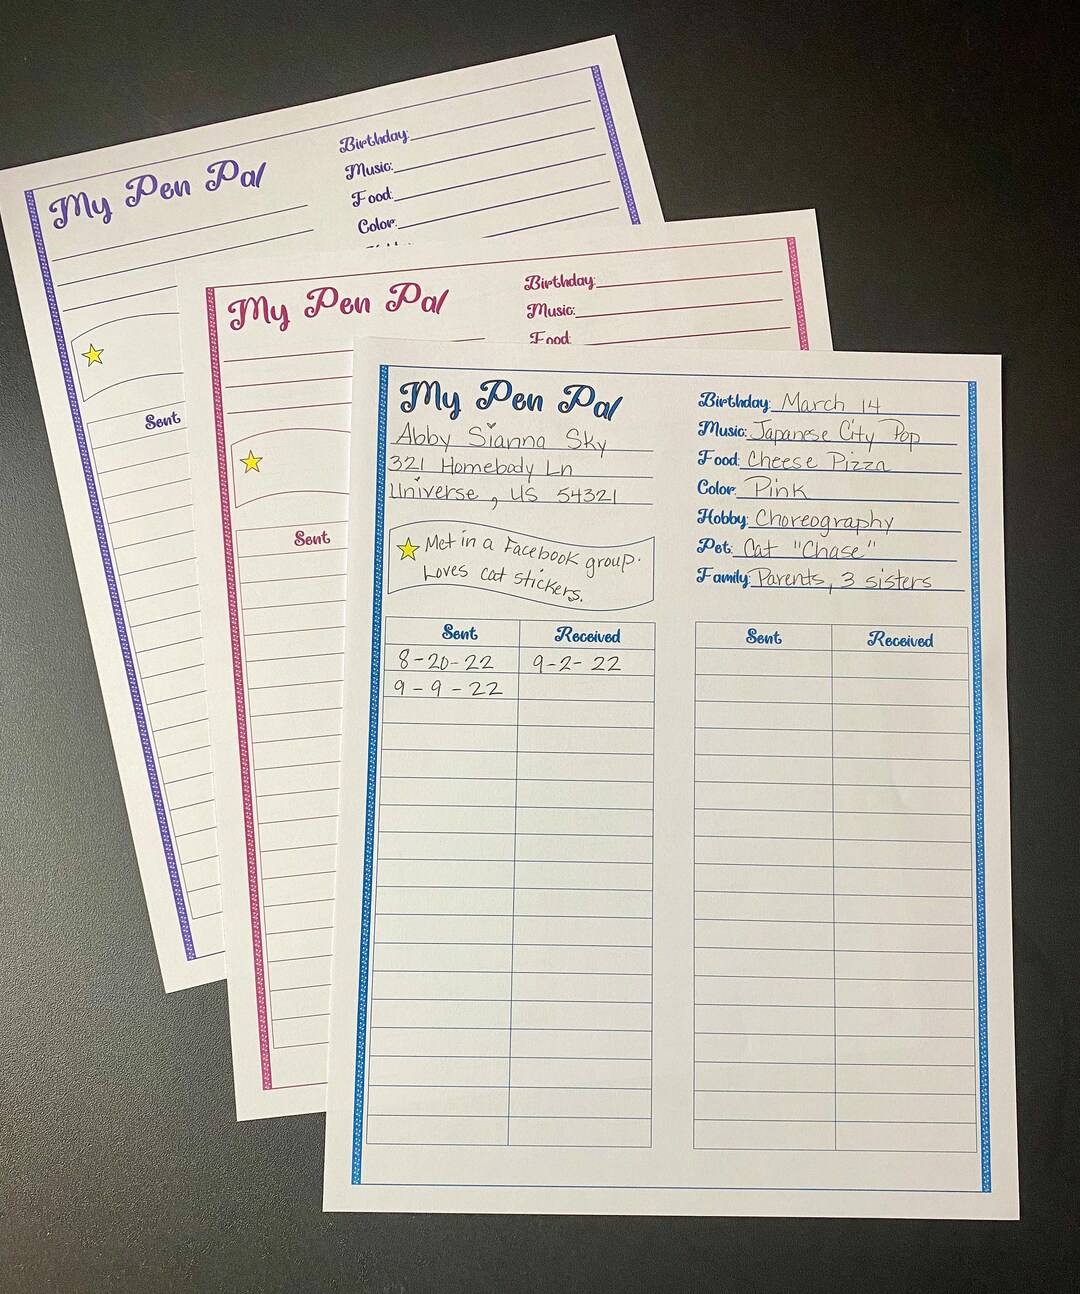 My Pen Pal
Birthday:
Music:
Food:
Color:
Sent
My Pen Pal
Birthday:
Music:
Food:
Sent
My Pen Pal
Abby Sianna Sky
321 Homebody Ln
Universe, US 54321
Birthday: March 14
Music: Japanese City Pop
Food: Cheese Pizza
Color: Pink
Hobby: Choreography
Pet: Cat "Chase"
Family: Parents, 3 sisters
Met in a Facebook group.
Loves cat stickers.
Sent Received
8-20-22 9-2-22
9-9-22
Sent Received